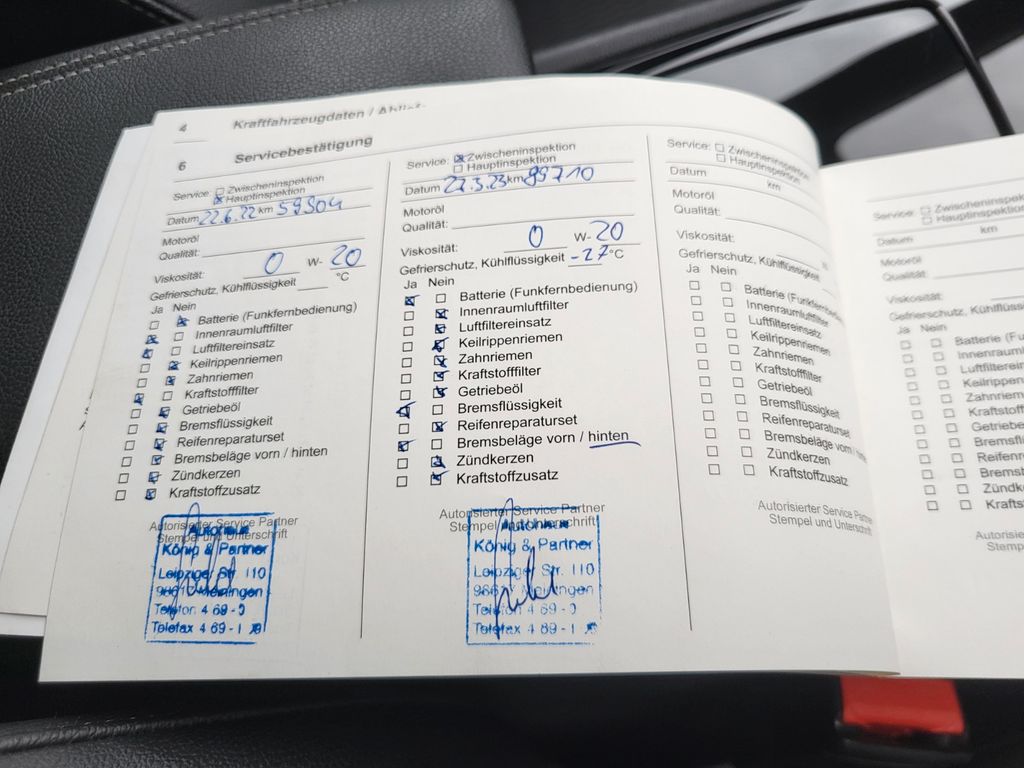 4 Kraftfahrzeugdaten /
6 Servicebestätigung
Service: Zwischeninspektion
Hauptinspektion
Datum 22.6.22 km 59504
Motoröl
Qualität:
Viskosität: 0 W- 20
Gefrierschutz, Kühlflüssigkeit °C
Ja Nein
Batterie (Funkfernbedienung)
Innenraumluftfilter
Luftfiltereinsatz
Keilrippenriemen
Zahnriemen
Kraftstofffilter
Getriebeöl
Bremsflüssigkeit
Reifenreparaturset
Bremsbeläge vorn / hinten
Zündkerzen
Kraftstoffzusatz
Autorisierter Service Partner
Stempel und Unterschrift
Autohaus
König & Partner
Leipziger Str. 110
Meiningen
Telefon 4 69 - 0
Telefax 4 69 - 1
Service: Zwischeninspektion
Hauptinspektion
Datum 27.3.23 km 89710
Motoröl
Qualität:
Viskosität: 0 W- 20
Gefrierschutz, Kühlflüssigkeit -27 °C
Ja Nein
Batterie (Funkfernbedienung)
Innenraumluftfilter
Luftfiltereinsatz
Keilrippenriemen
Zahnriemen
Kraftstofffilter
Getriebeöl
Bremsflüssigkeit
Reifenreparaturset
Bremsbeläge vorn / hinten
Zündkerzen
Kraftstoffzusatz
Autorisierter Service Partner
Stempel und Unterschrift
Autohaus
König & Partner
Leipziger Str. 110
Meiningen
Telefon 4 69 - 0
Telefax 4 69 - 1
Service: Zwischeninspektion
Hauptinspektion
Datum km
Motoröl
Qualität:
Viskosität:
Gefrierschutz, Kühlflüssigkeit
Ja Nein
Batterie (Funkfernbedienung)
Innenraumluftfilter
Luftfiltereinsatz
Keilrippenriemen
Zahnriemen
Kraftstofffilter
Getriebeöl
Bremsflüssigkeit
Reifenreparaturset
Bremsbeläge vorn / hinten
Zündkerzen
Kraftstoffzusatz
Autorisierter Service Partner
Stempel und Unterschrift
Service: Zwischeninspektion
Hauptinspektion
Datum km
Motoröl
Qualität:
Viskosität:
Gefrierschutz, Kühlflüss
Ja Nein
Batterie (Fu
Innenraumlu
Luftfiltereins
Keilrippenri
Zahnriemen
Kraftstoff
Getriebe
Bremsfl
Reifenre
Bremsb
Zündk
Krafts
Autoris
Stemp